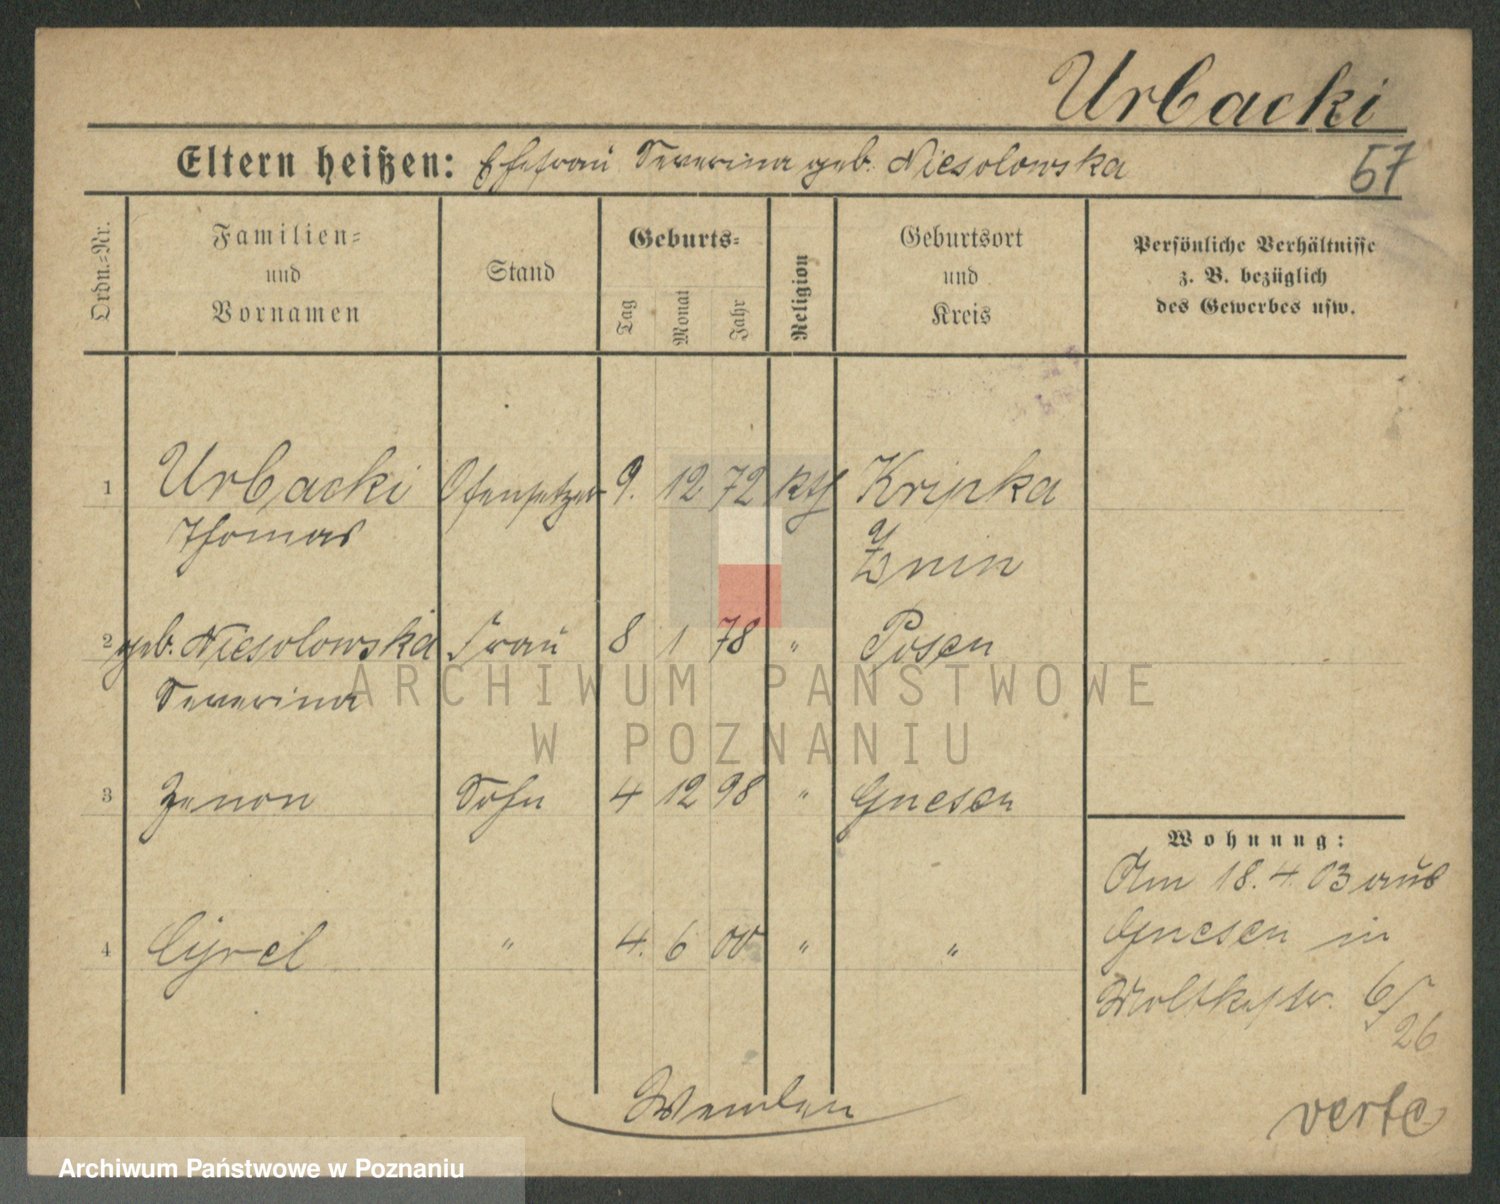 Urbacki
Eltern heißen: Ehefrau Severina geb. Niesolowska
57
Ordn.-Nr.
Familien-
und
Vornamen
Stand
Geburts-
Tag
Monat
Jahr
Religion
Geburtsort
und
Kreis
Persönliche Verhältnisse
z. B. bezüglich
des Gewerbes usw.
1 Urbacki Ofensetzer 9. 12 72 kth Kripka
Thomas
Znin
2 geb. Niesolowska Frau 8 1 78 " Posen
Severina
ARCHIWUM PAŃSTWOWE
W POZNANIU
3 Zenon Sohn 4 12 98 " Gnesen
Wohnung:
Am 18.4.03 aus
4 Cyrel " 4. 6 00 " "
Gnesen in
Moltkestr. 6/
26
Wenden
verte
Archiwum Państwowe w Poznaniu